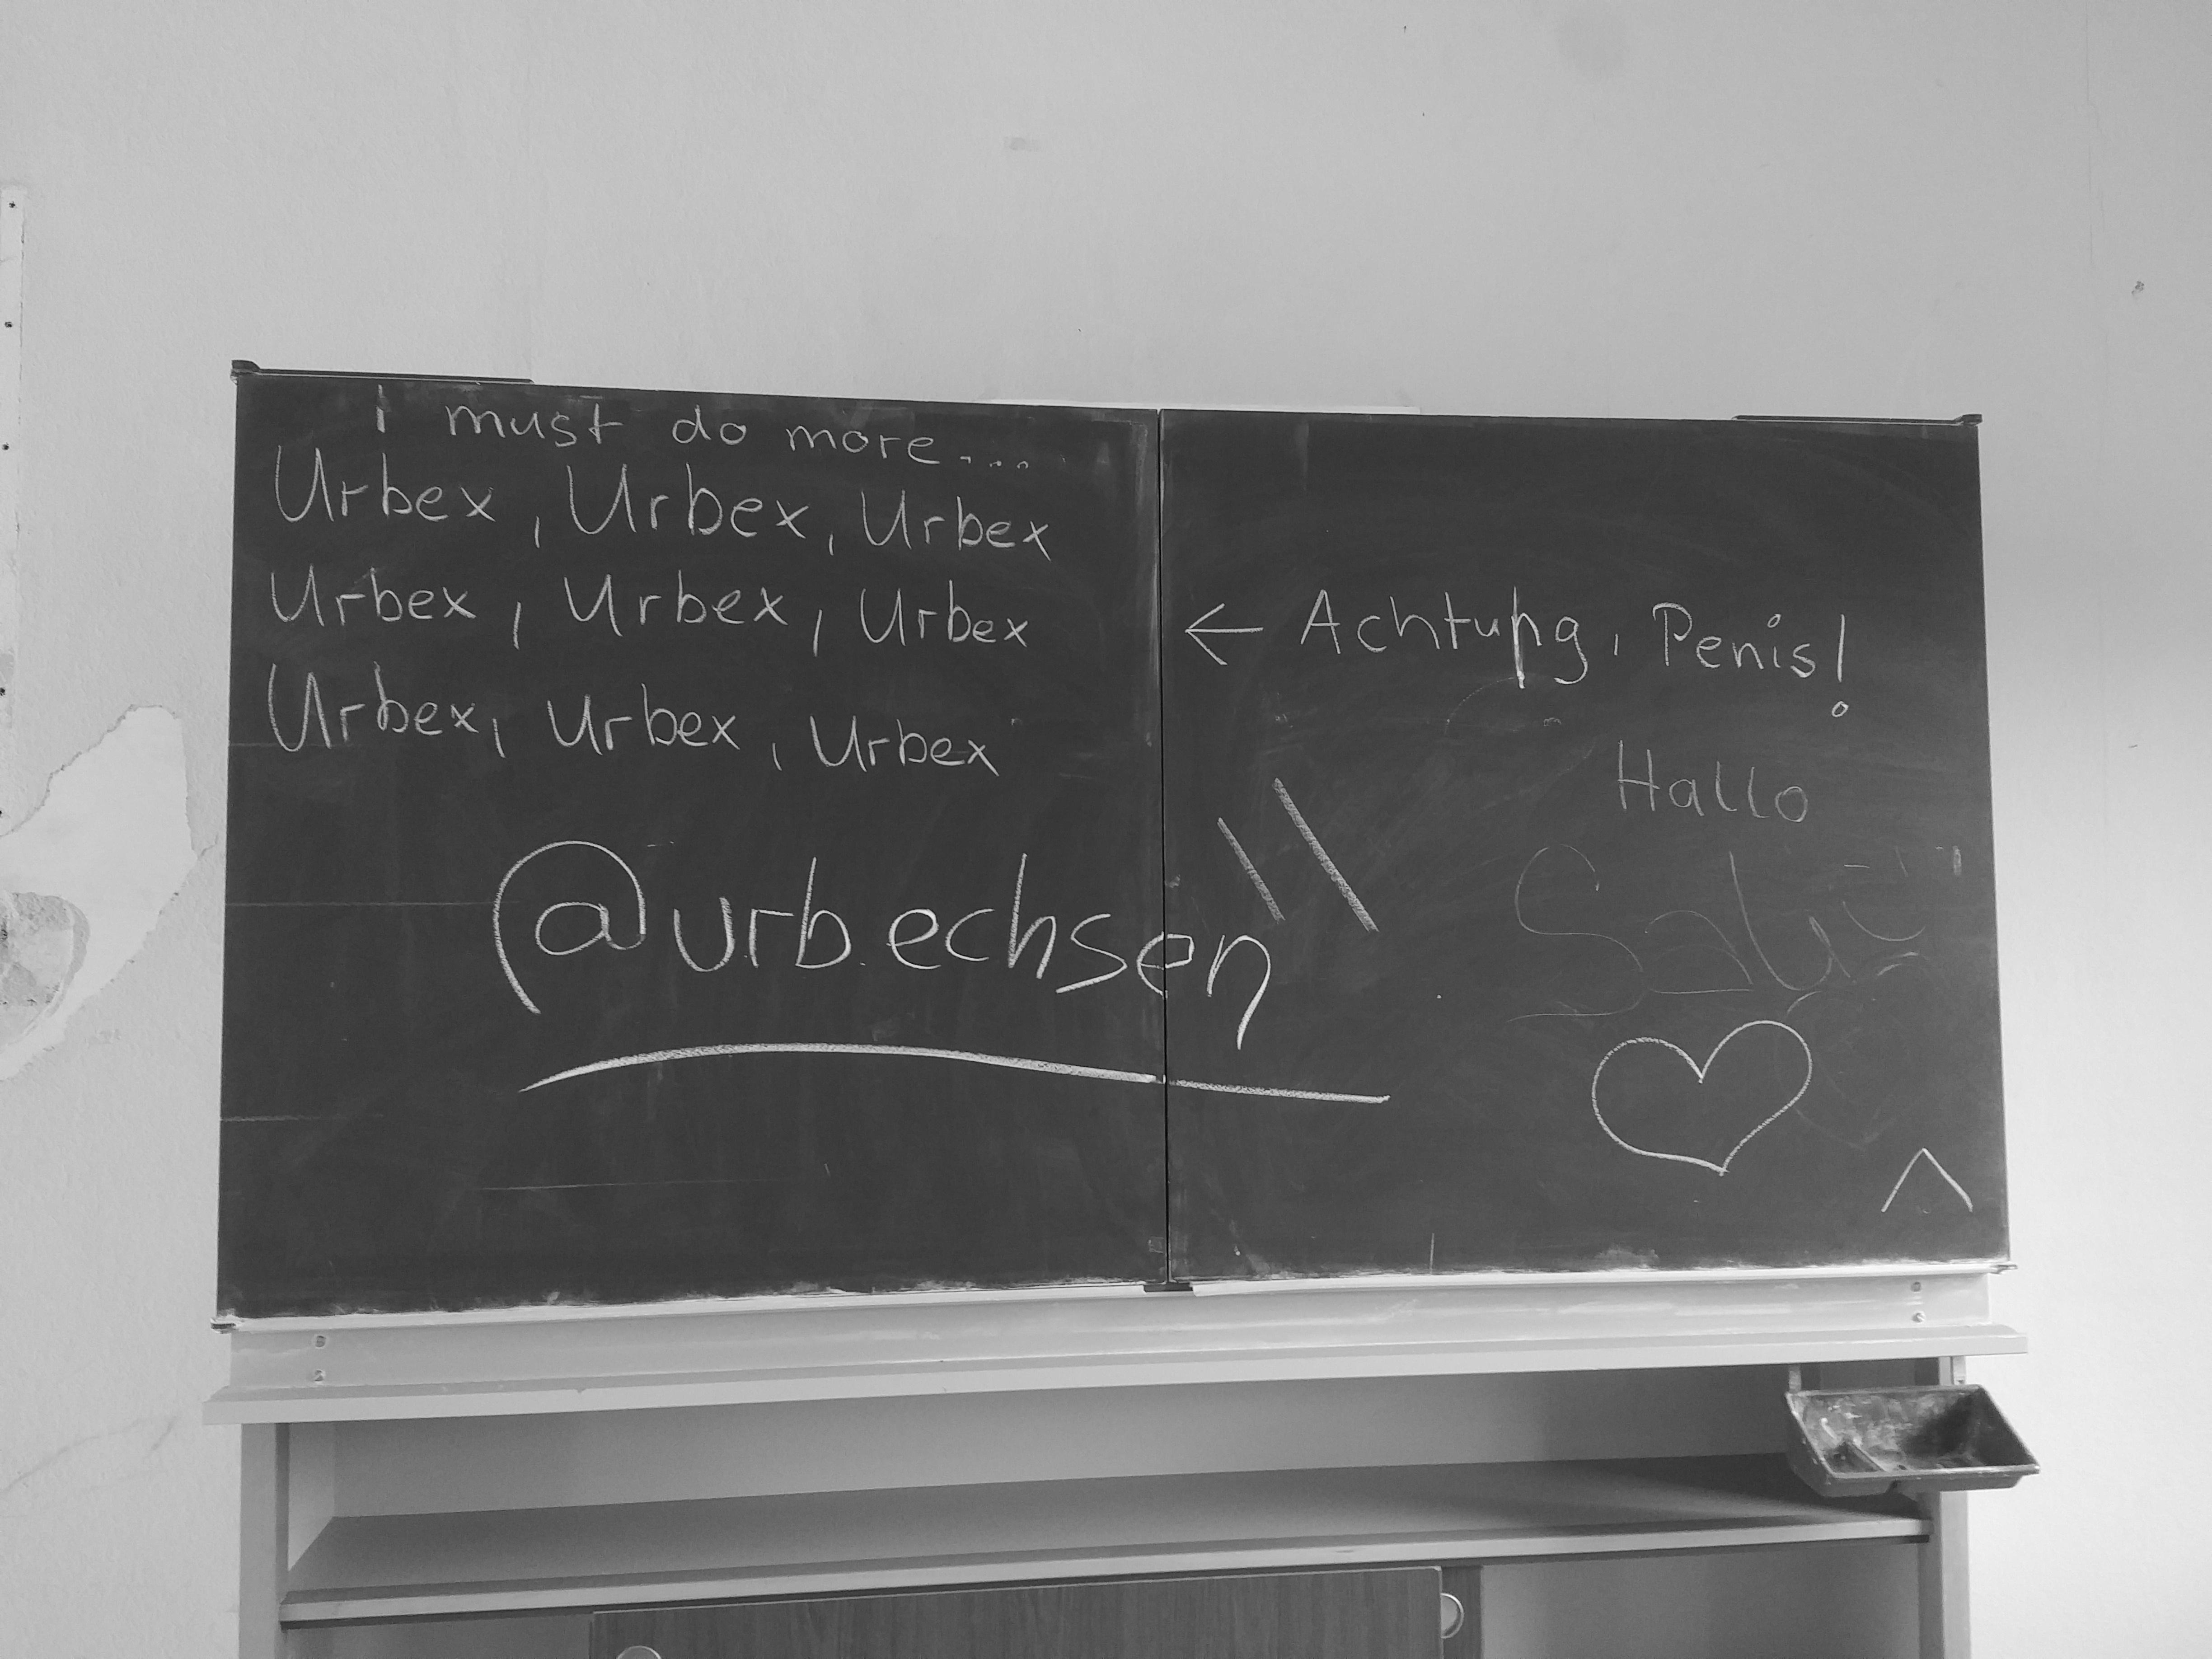 I must do more....
Urbex, Urbex, Urbex
Urbex, Urbex, Urbex
Urbex, Urbex, Urbex
@urb.echsen
← Achtung, Penis!
Hallo